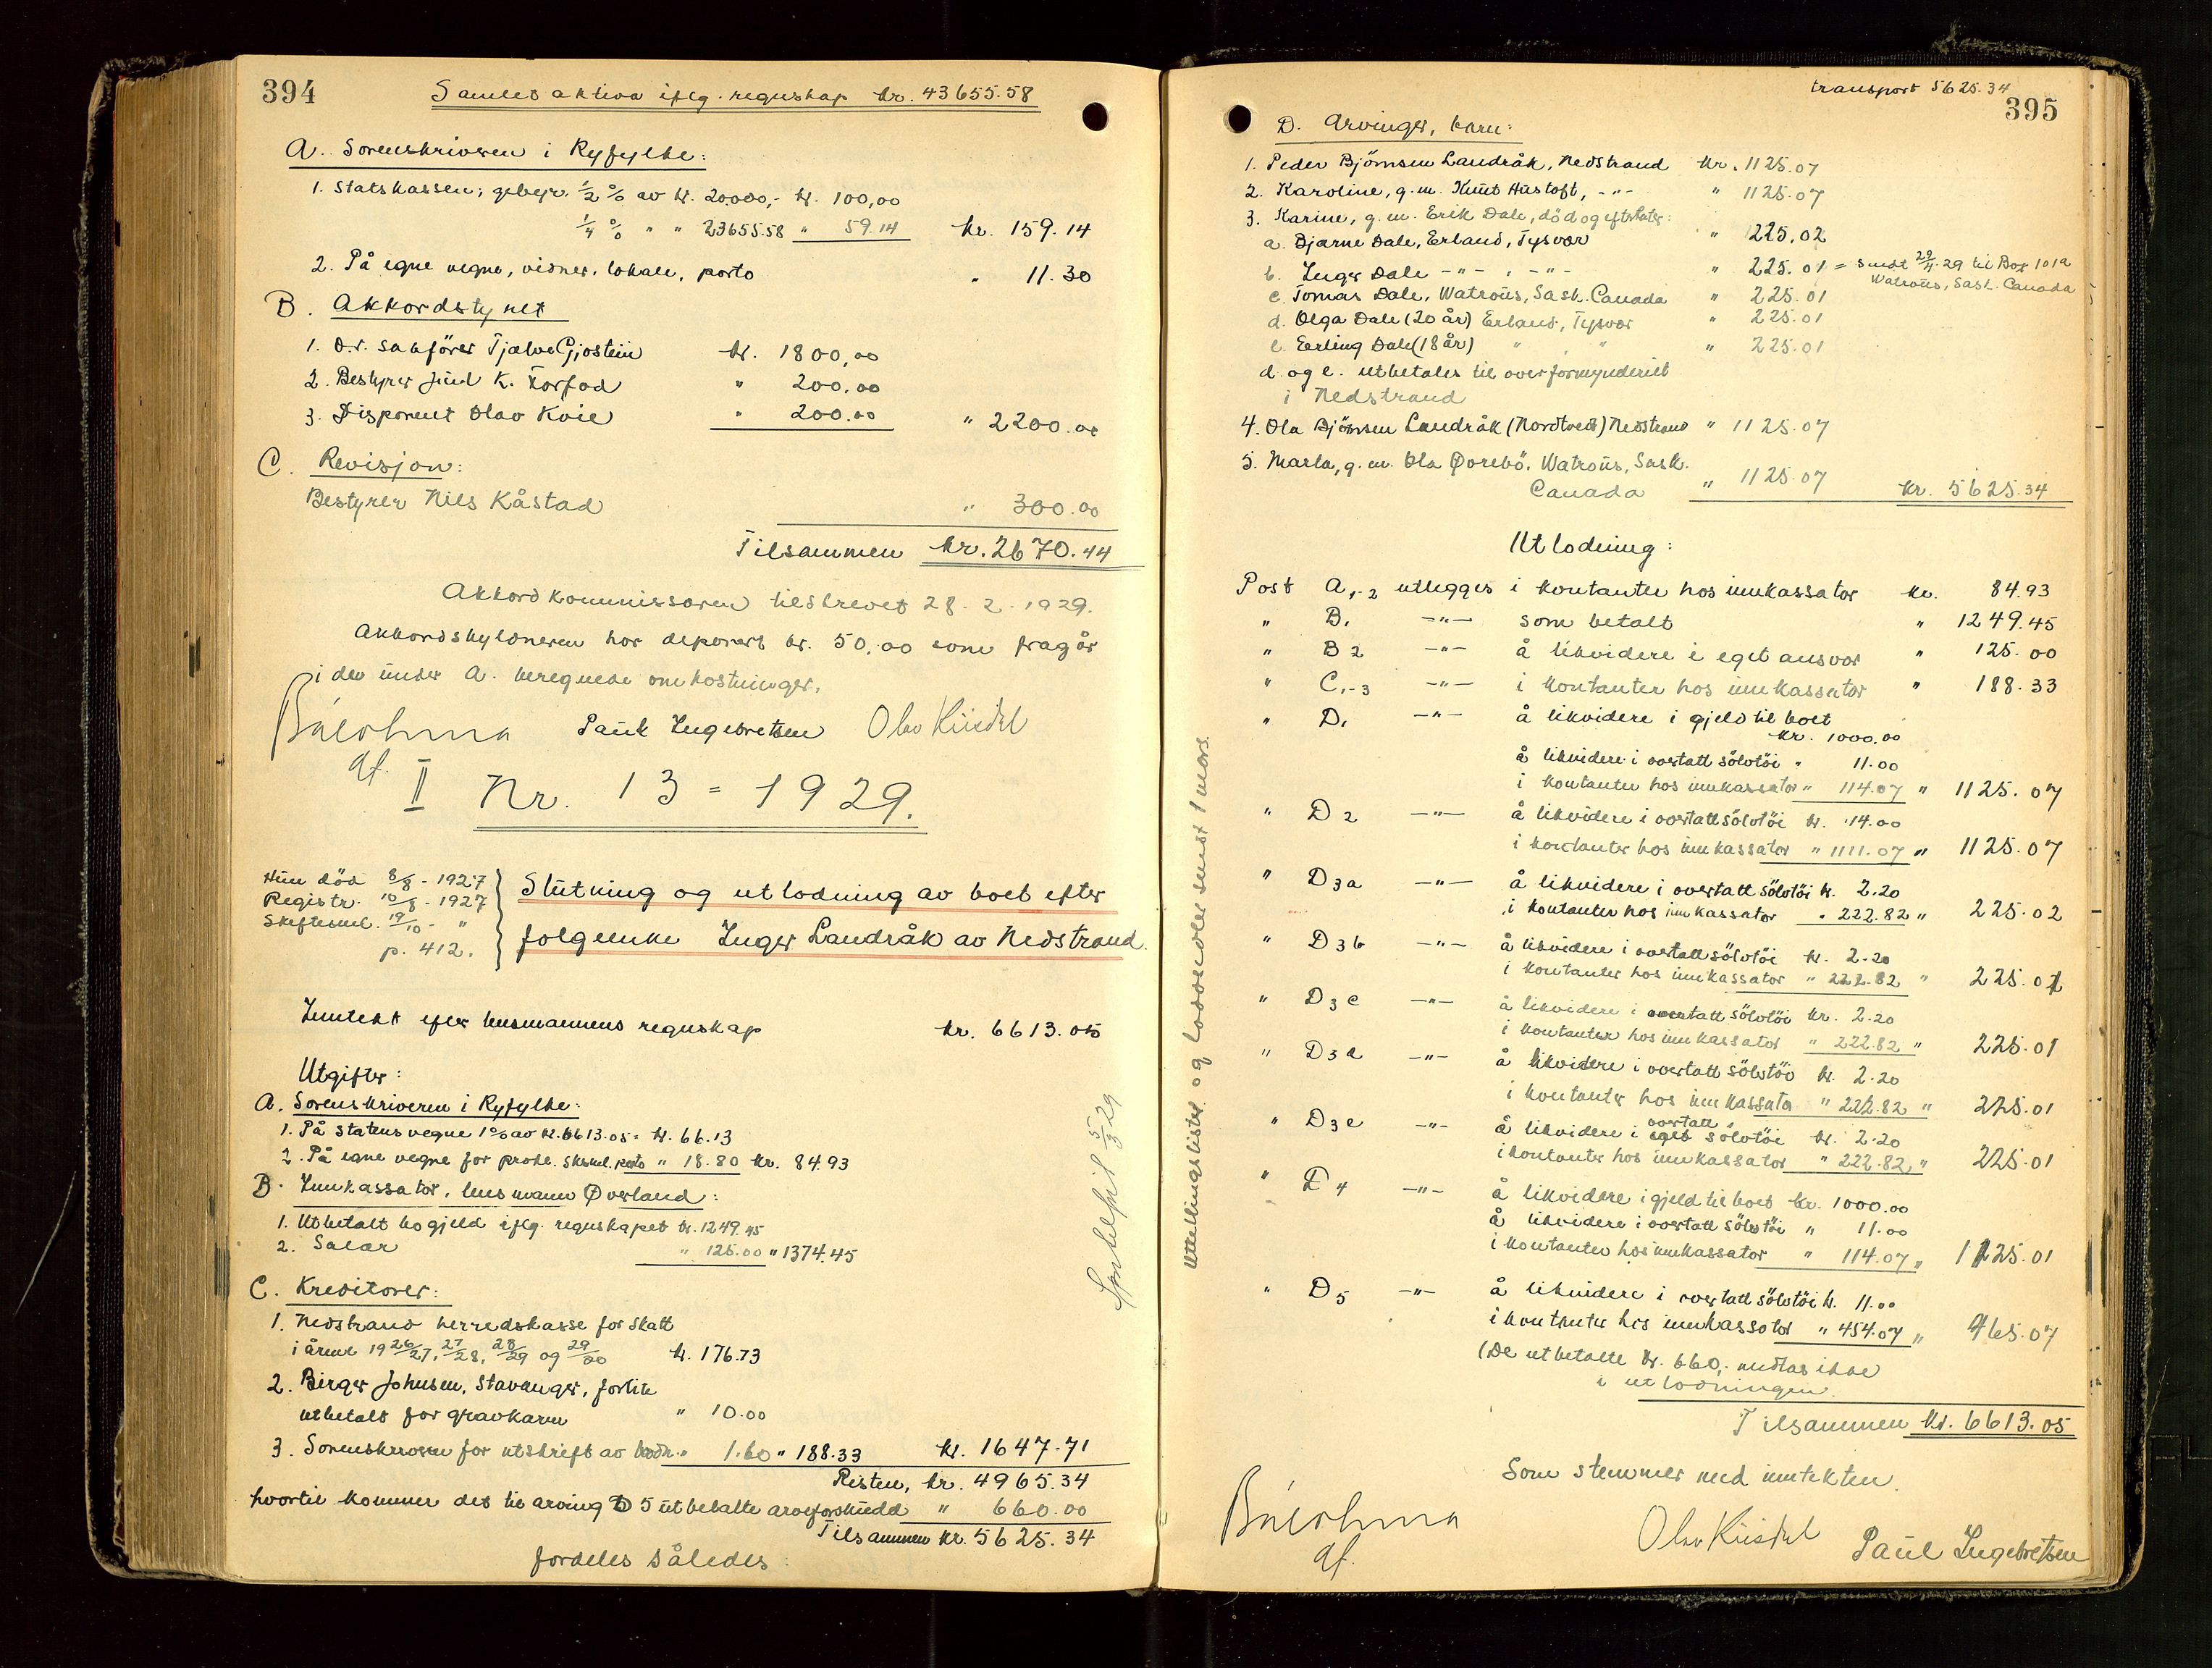 394
Samlet aktiva iflg. regnskap kr. 43655.58
A. Sorenskriveren i Ryfylke:
1. Statskassen, gebyr. 1/2 % av kr. 20000,- kr. 100,00
1/4 % " " 23655.58 " 59.14 kr. 159.14
2. På egne vegne, vidner, lokale, porto " 11.30
B. Akkordstyret
1. O.r. sakfører Tjælve Gjostein kr. 1800,00
2. Bestyrer Juul K. Torfod " 200,00
3. Disponent Olav Kvie " 200.00 " 2200.00
C. Revisjon:
Bestyrer Nils Kåstad " 300.00
Tilsammen kr. 2670.44
Akkordkommissæren tilskrevet 28.2.1929.
Akkordskyldneren har deponert kr. 50,00 som fragår
i de under A. beregnede omkostninger.
Paul Ingebretsen
qf.
II Nr. 13 = 1929.
Hun død 8/8 - 1927
Registr. 10/8 - 1927
Skiftesml. 19/10 - "
p. 412.
Slutning og utlodning av boet efter
følgeenke Inger Landråk av Nedstrand.
Inntekt efter lensmannens regnskap kr. 6613.05
Utgifter:
A. Sorenskriveren i Ryfylke:
1. På statens vegne 1% av kr. 6613.05 = kr. 66.13
2. På egne vegne for protk. skssml. porto " 18.80 kr. 84.93
B. Innkassator, lensmann Øverland:
1. Utbetalt bogjeld iflg. regnskapet kr. 1249.45
2. Salær " 125.00 " 1374.45
C. Kreditorer:
1. Nedstrand herredskasse for skatt
i årene 1926/27, 27/28, 28/29 og 29/30 kr. 176.73
2. Birger Johnsen, Stavanger, for
utbetalt for gravkarm " 10.00
3. Sorenskriveren for utskrift av " 1.60 " 188.33 kr. 1647.71
Resten, kr. 4965.34
hvortil kommer det til arving D 5 utbetalte arveforskudd " 660.00
Tilsammen kr. 5625.34
fordeles således:
5/3 29
395
transport 5625.34
D. Arvinger, barn:
1. Peder Björnsen Landråk, Nedstrand kr. 1125.07
2. Karoline, g.m. Knut Aastoft, -"- " 1125.07
3. Karine, g.m. Erik Dale, død og efterlater:
a. Bjarne Dale, Erland, Tysvær " 225.02
b. Inger Dale -"- , -"- " 225.01 = sendt 29/4.29 til Box 101a
Watrous, Sask. Canada
c. Tomas Dale, Watrous, Sask. Canada " 225.01
d. Olga Dale (20 år) Erland, Tysvær " 225.01
e. Erling Dale (18 år) " " " 225.01
d og e. utbetales til overformynderiet
i Nedstrand
4. Ola Björnsen Landråk (Nordtveit) Nedstrand " 1125.07
5. Marta, g.m. Ola Ørebö, Watrous, Sask.
Canada " 1125.07 kr. 5625.34
Utlodning:
Post A1-2 utlegges i kontanter hos innkassator kr. 84.93
" B1 -"- som betalt " 1249.45
" B2 -"- å likvidere i eget ansvar " 125.00
" C1-3 -"- i kontanter hos innkassator " 188.33
" D1 -"- å likvidere i gjeld til boet
kr. 1000.00
å likvidere i overtatt sölvtöi " 11.00
i kontanter hos innkassator " 114.07 " 1125.07
" D2 -"- å likvidere i overtatt sölvtöi kr. 14.00
i kontanter hos innkassator " 1111.07 " 1125.07
" D3a -"- å likvidere i overtatt sölvtöi kr. 2.20
i kontanter hos innkassator " 222.82 " 225.02
" D3b -"- å likvidere i overtatt sölvtöi kr. 2.20
i kontanter hos innkassator " 222.82 " 225.01
" D3c -"- å likvidere i overtatt sölvtöi kr. 2.20
i kontanter hos innkassator " 222.82 " 225.01
" D3d -"- å likvidere i overtatt sölvtöi kr. 2.20
i kontanter hos innkassator " 222.82 " 225.01
" D3e -"- å likvidere i eget overtatt sölvtöi kr. 2.20
i kontanter hos innkassator " 222.82 " 225.01
" D4 -"- å likvidere i gjeld til boet kr. 1000.00
å likvidere i overtatt sölvtöi " 11.00
i kontanter hos innkassator " 114.07 " 1125.01
" D5 -"- å likvidere i overtatt sölvtöi kr. 11.00
i kontanter hos innkassator " 454.07 " 465.07
(De utbetalte kr. 660,- medtas ikke
i utlodningen.
Tilsammen kr. 6613.05
Som stemmer med inntekten.
qf.
Paul Ingebretsen
og loddsedler sendt 1 mars.